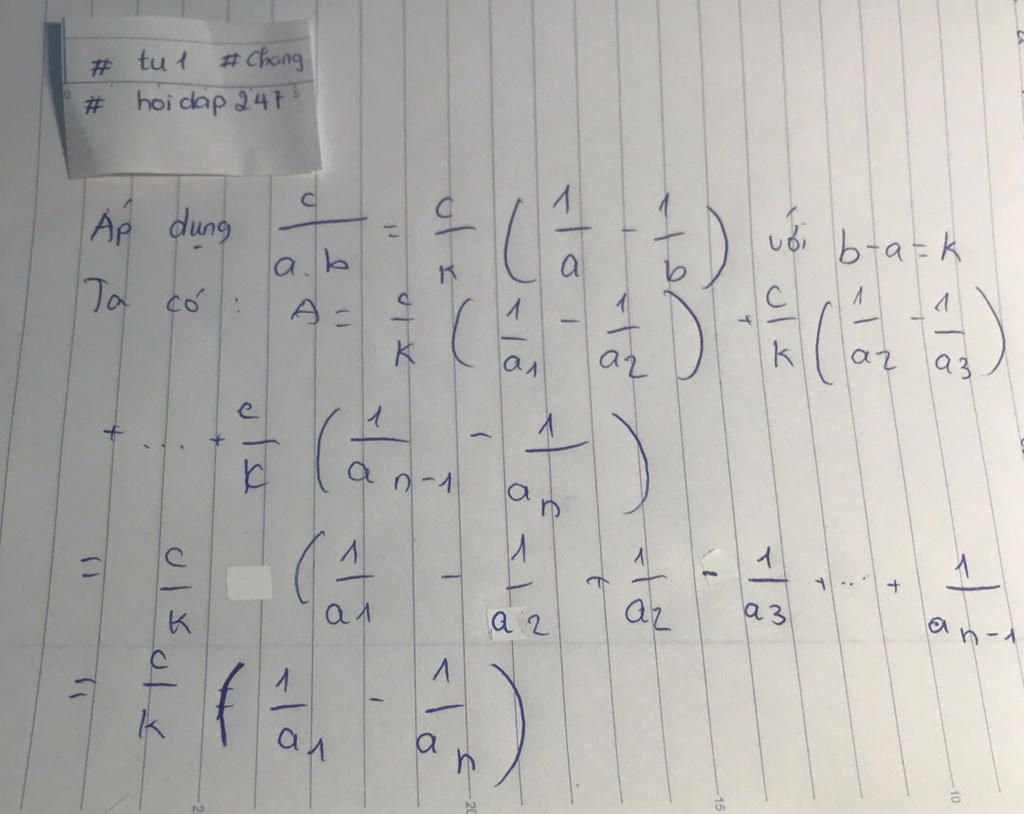 # tu1 #Chong
# hoidap247
Áp dụng c/(a.b) = c/k (1/a - 1/b) với b-a=k
Ta có: A = c/k (1/a1 - 1/a2) + c/k (1/a2 - 1/a3)
+ ... + c/k (1/a n-1 - 1/a n)
= c/k (1/a1 - 1/a2 + 1/a2 - 1/a3 + ... + 1/a n-1
= c/k (1/a1 - 1/a n)
2 20 15 10